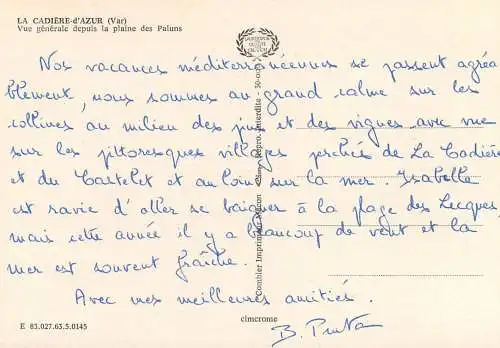 LA CADIÈRE-d'AZUR (Var)
Vue générale depuis la plaine des Paluns
Nos vacances méditerranéennes se passent agréa
blement, nous sommes au grand calme sur les
collines au milieu des pins et des vignes avec vue
sur les pittoresques villages perchés de La Cadière
et du Castelet et au loin sur la mer. Isabelle
est ravie d'aller se baigner à la plage des Lecques,
mais cette année il y a beaucoup de vent et la
mer est souvent fraîche.
Avec mes meilleures amitiés.
B.
E 83.027.63.5.0145
cimcrome
Combier Imprimeur Mâcon Repro. Interdite